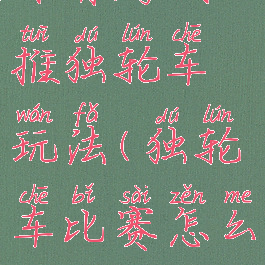 tuī dú lún chē
推独轮车
wán fǎ dú lún
玩法(独轮
chē bǐ sài zěn me
车比赛怎么